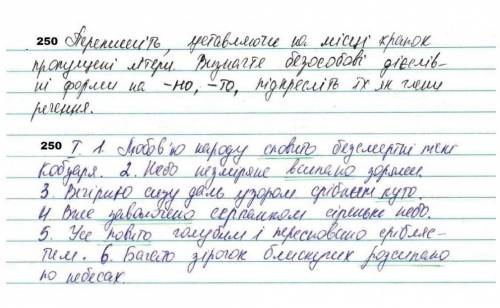 250 Перепишіть, уставляючи на місці крапок
пропущені літери. Визначте безособові дієслів-
ні форми на -но, -то, підкресліть їх як члени
речення.
250 І. 1. Любов'ю народу сповито безсмертні пісні
Кобзаря. 2. Небо незміряне всипано зорями.
3. Вечірню сизу даль узором срібним куто.
4 Вже заволочено серпанком сіреньке небо.
5. Усе повито голубим і пересновано срібляс-
тим. 6. Багато зірочок блискучих розсипано
по небесах.